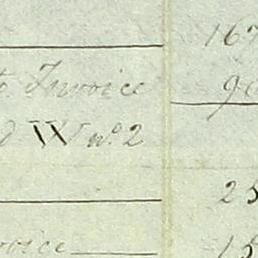 167
to Invoice 90
d W nº 2
25
voice 15